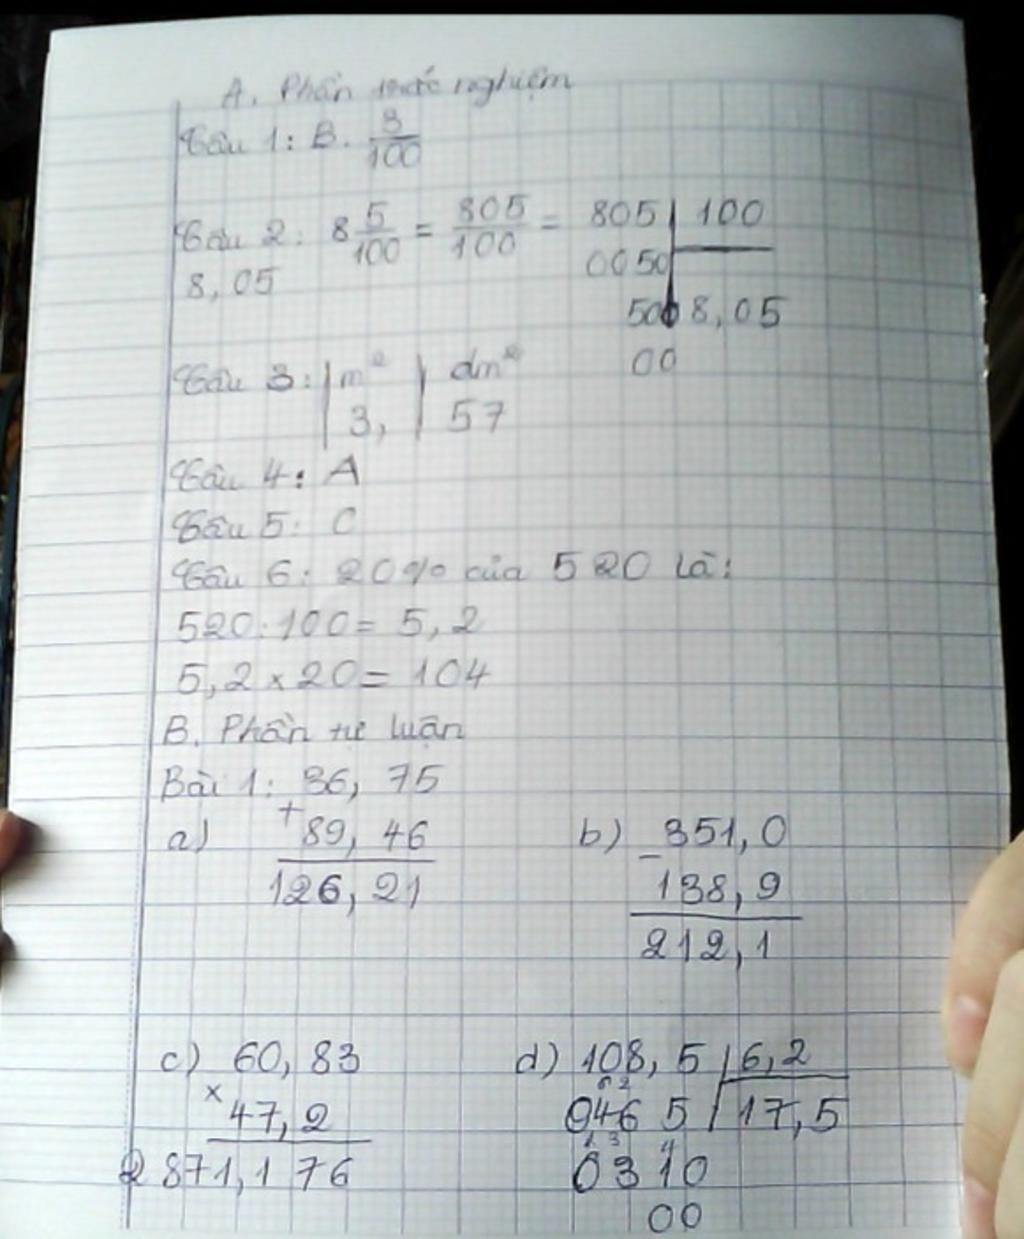 A. Phần trắc nghiệm
Câu 1: B. 3/100
Câu 2: 8 5/100 = 805/100 = 805 | 100
8,05
0050
500 8,05
00
Câu 3: | m² | dm²
3, | 57
Câu 4: A
Câu 5: C
Câu 6: 20% của 520 là:
520:100 = 5,2
5,2 × 20 = 104
B. Phần tự luận
Bài 1: 36,75
a) + 89,46
126,21
b) - 351,0
138,9
212,1
c) 60,83
× 47,2
2871,176
d) 108,5 | 6,2
0465 | 17,5
0310
00